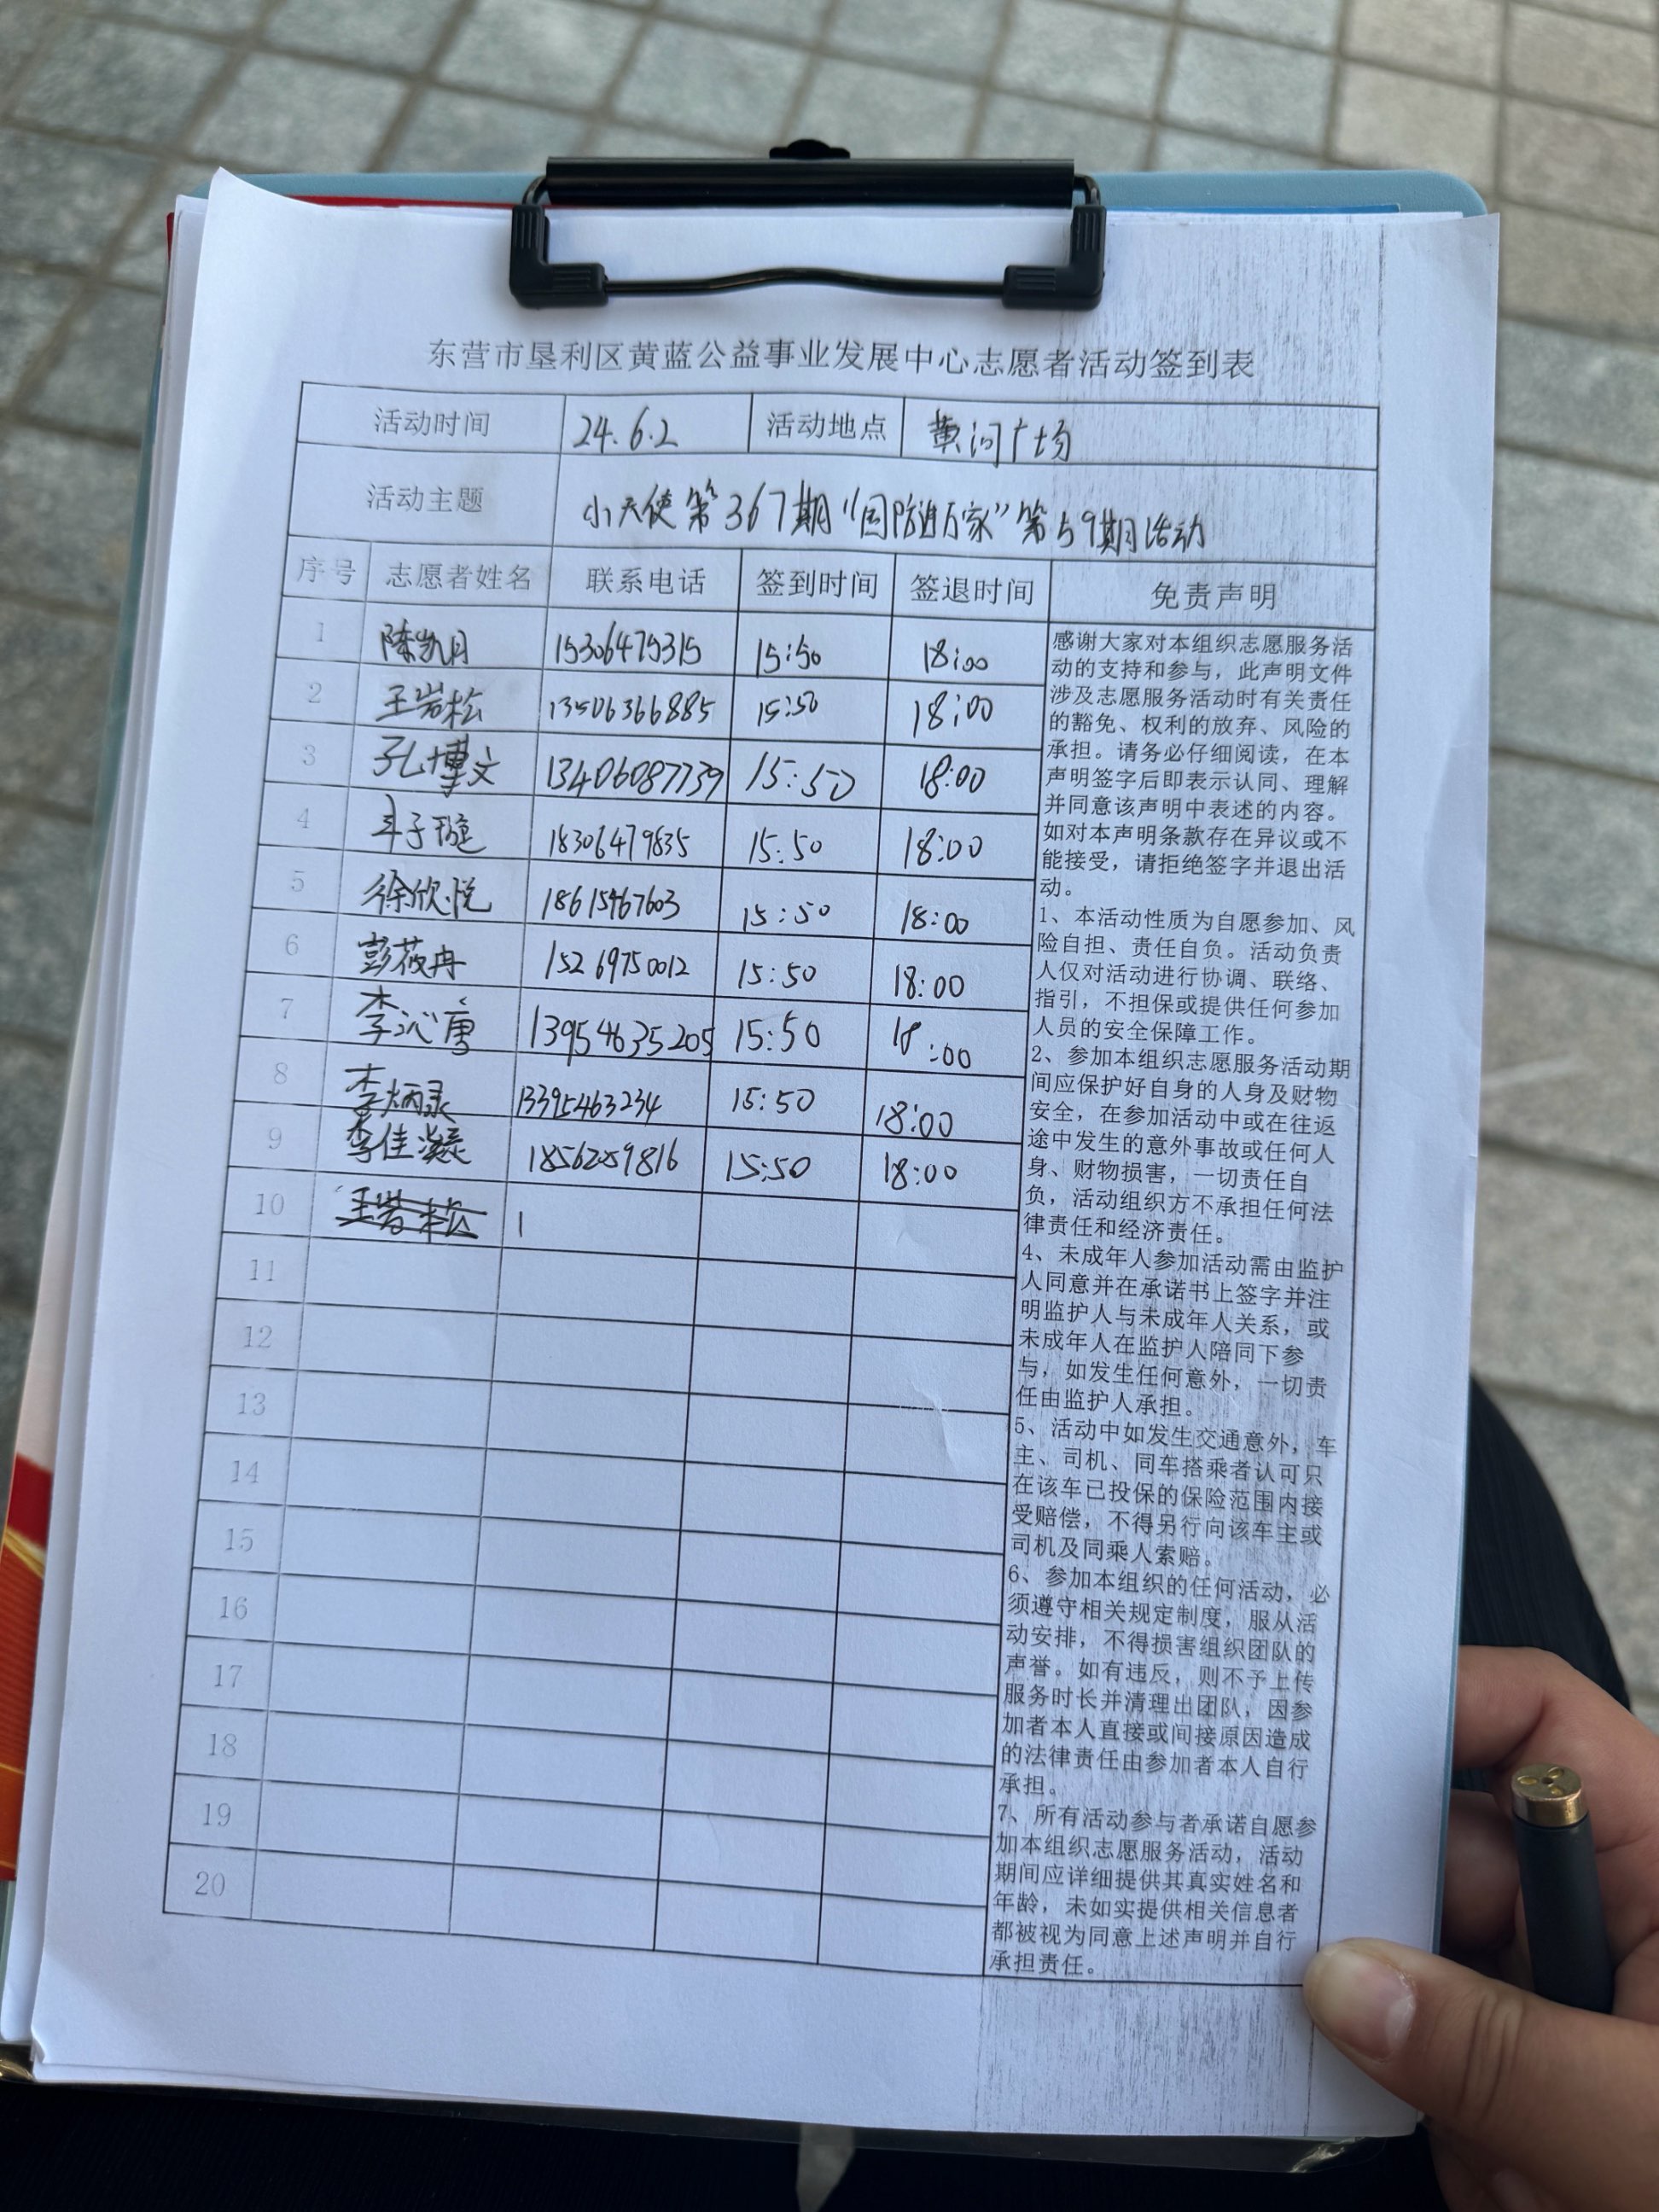 东营市垦利区黄蓝公益事业发展中心志愿者活动签到表
活动时间 24.6.2 活动地点 黄河广场
活动主题 小天使第367期“国防进万家”第59期活动
序号 志愿者姓名 联系电话 签到时间 签退时间 免责声明
1 陈凯月 15306475315 15:50 18:00
2 王岩松 13506366885 15:50 18:00
3 孔博文 13406087739 15:50 18:00
4 子璇 18306479835 15:50 18:00
5 徐欣悦 18615467603 15:50 18:00
6 彭莜冉 15269750012 15:50 18:00
7 李沁唐 13954635205 15:50 18:00
8 李炳录 13395463234 15:50 18:00
9 李佳凝 18562059816 15:50 18:00
10 王岩松 1
11
12
13
14
15
16
17
18
19
20
感谢大家对本组织志愿服务活
动的支持和参与，此声明文件
涉及志愿服务活动时有关责任
的豁免、权利的放弃、风险的
承担。请务必仔细阅读，在本
声明签字后即表示认同、理解
并同意该声明中表述的内容。
如对本声明条款存在异议或不
能接受，请拒绝签字并退出活
动。
1、本活动性质为自愿参加、风
险自担、责任自负。活动负责
人仅对活动进行协调、联络、
指引，不担保或提供任何参加
人员的安全保障工作。
2、参加本组织志愿服务活动期
间应保护好自身的人身及财物
安全，在参加活动中或在往返
途中发生的意外事故或任何人
身、财物损害，一切责任自
负，活动组织方不承担任何法
律责任和经济责任。
4、未成年人参加活动需由监护
人同意并在承诺书上签字并注
明监护人与未成年人关系，或
未成年人在监护人陪同下参
与，如发生任何意外，一切责
任由监护人承担。
5、活动中如发生交通意外，车
主、司机、同车搭乘者认可只
在该车已投保的保险范围内接
受赔偿，不得另行向该车主或
司机及同乘人索赔。
6、参加本组织的任何活动，必
须遵守相关规定制度，服从活
动安排，不得损害组织团队的
声誉。如有违反，则不予上传
服务时长并清理出团队，因参
加者本人直接或间接原因造成
的法律责任由参加者本人自行
承担。
7、所有活动参与者承诺自愿参
加本组织志愿服务活动，活动
期间应详细提供其真实姓名和
年龄，未如实提供相关信息者
都被视为同意上述声明并自行
承担责任。